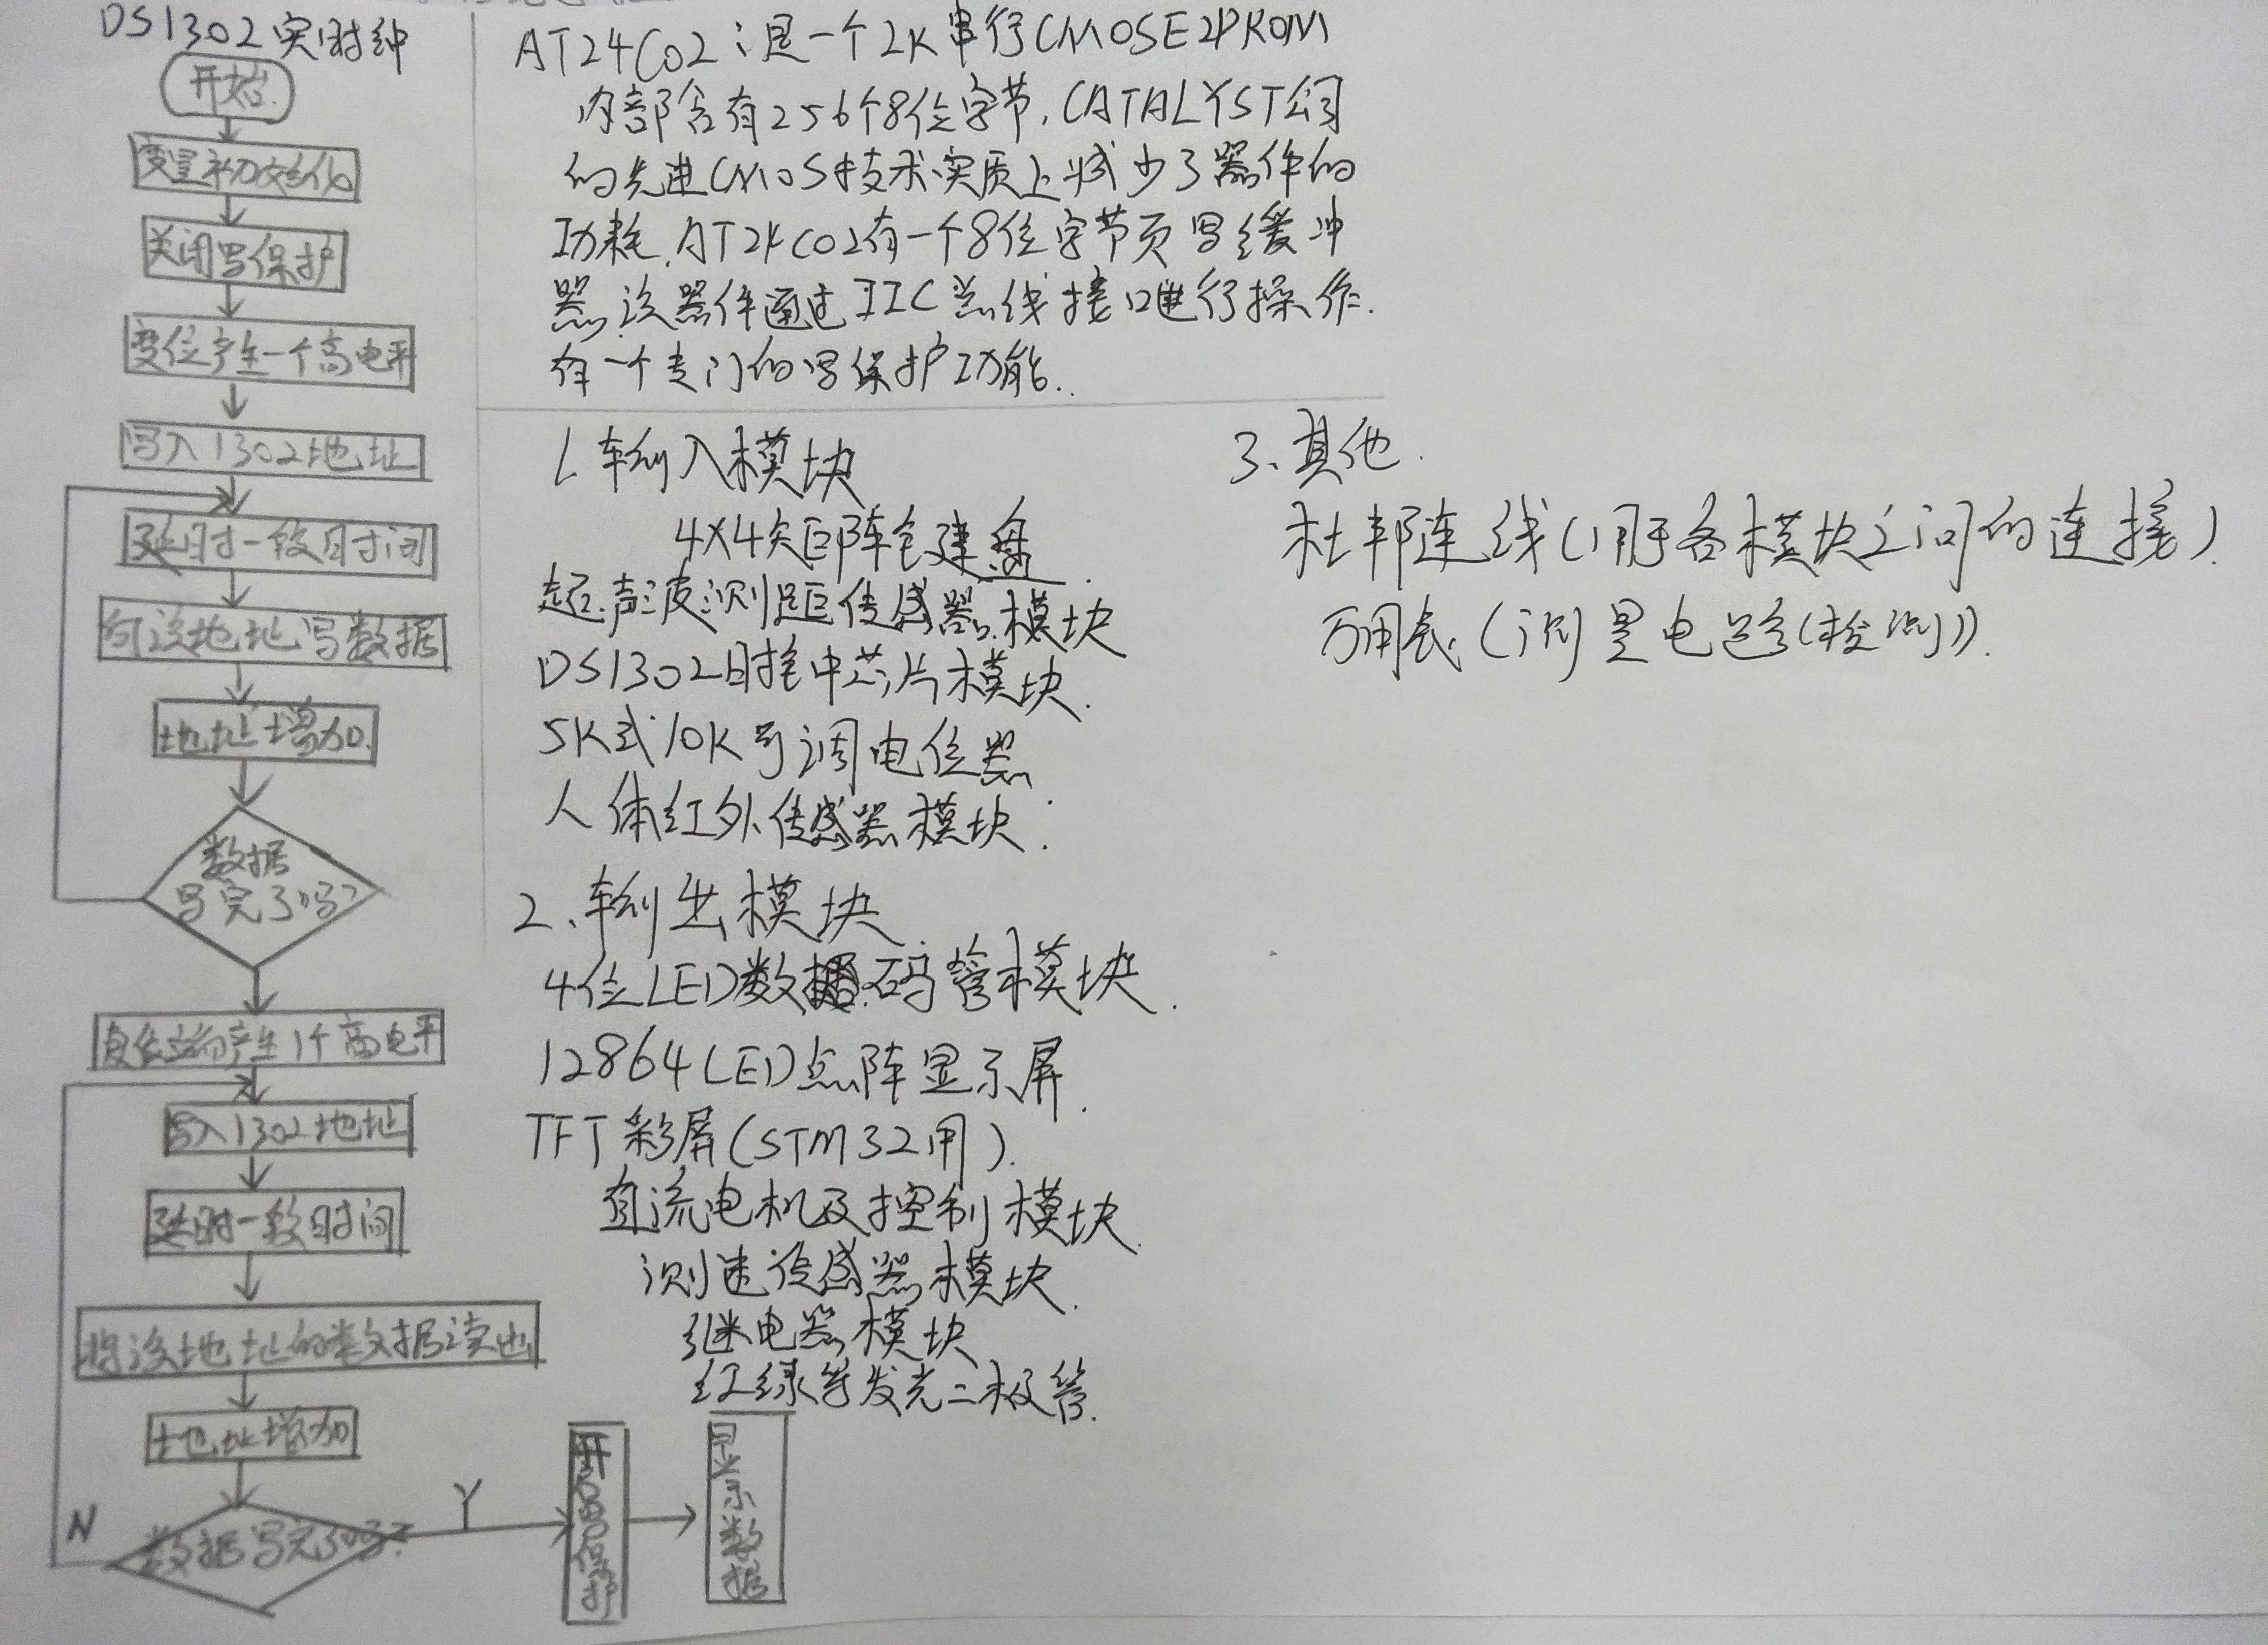 DS1302实时钟
开始
变量初始化
关闭写保护
复位产生一个高电平
写入1302地址
延时一段时间
向该地址写数据
地址增加
数据
写完了吗?
复位端产生1个高电平
写入1302地址
延时一段时间
将该地址的数据读出
地址增加
数据写完了吗?
N
Y
开启写保护
显示数据
AT24C02:是一个2K串行CMOSE2PROM
内部含有256个8位字节,CATALYST公司
的先进CMOS技术实质上减少了器件的
功耗.AT24C02有一个8位字节页写缓冲
器.该器件通过IIC总线接口进行操作.
有一个专门的写保护功能.
1.输入模块
4X4矩阵键盘.
超声波测距传感器模块
DS1302时钟芯片模块.
5K或10K可调电位器
人体红外传感器模块.
2、输出模块.
4位LED数码管模块.
12864LED点阵显示屏.
TFT彩屏(STM32用).
直流电机及控制模块.
测速传感器模块.
继电器模块
红绿等发光二极管.
3、其他.
杜邦连线(用于各模块之间的连接).
万用表(测量电路(检测)).